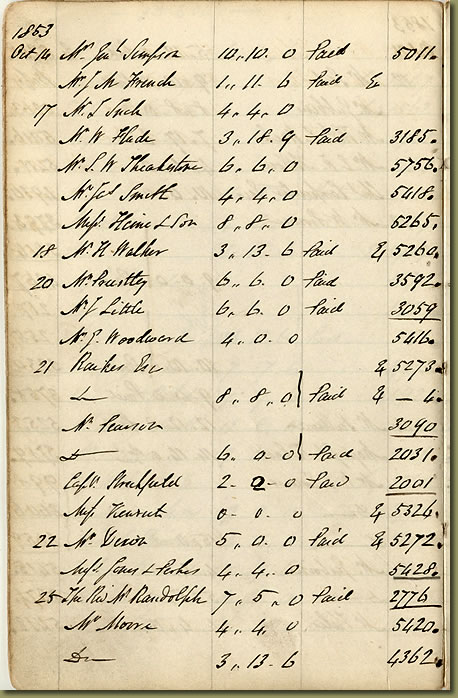 1853
Oct 14 Mr Jno Simpson 10,, 10. 0 Paid 5011.
Mr J M French 1,, 11. 6 Paid &
17 Mr J Such 4,, 4. 0
Mr W Hude 3,, 18. 9 Paid 3185.
Mr S. W Theakstone 6,, 6. 0 5756.
Mr Jas Smith 4,, 4. 0 5418.
Messrs Heine & Son 8,, 8,, 0 5265.
18 Mr H Walker 3,, 13- 6 Paid & 5260.
20 Mr Priestley 6,, 6. 0 Paid 3592.
Mr J Little 6,, 6. 0 Paid 3059
Mr J. Woodward 4. 0- 0 5416.
21 Raikes Esq & 5273.
8,, 8,, 0 Paid & — 6.
Mr Pearson 3090
6,, 0- 0 Paid 2031.
Capt 2- 2- 0 Paid 2001
0- 0- 0 & 5324.
22 Mr Dixon 5,, 0. 0 Paid & 5272.
Messrs Jones & 4,, 4. 0 5428.
25 The Rev Mr Randolph 7,, 5,, 0 Paid 2776
Mr Moore 4,, 4,, 0 5420.
Do 3,, 13- 6 4362.